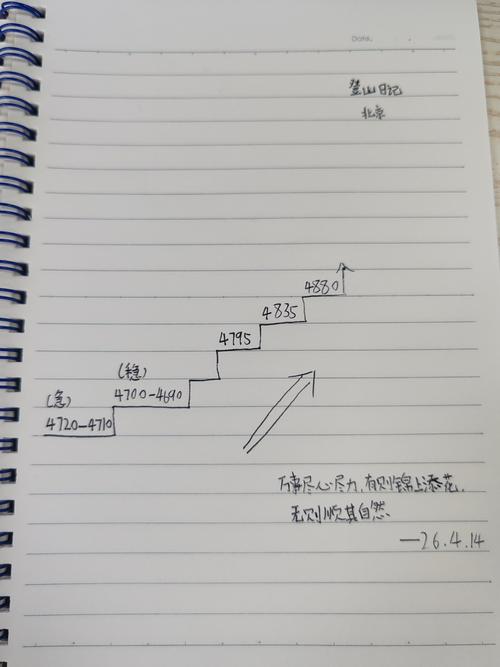 Date.
登山日记
北京
4880
4835
4795
(稳)
4700-4690
(急)
4720-4710
万事尽心尽力,有则锦上添花,
无则顺其自然、
—26.4.14